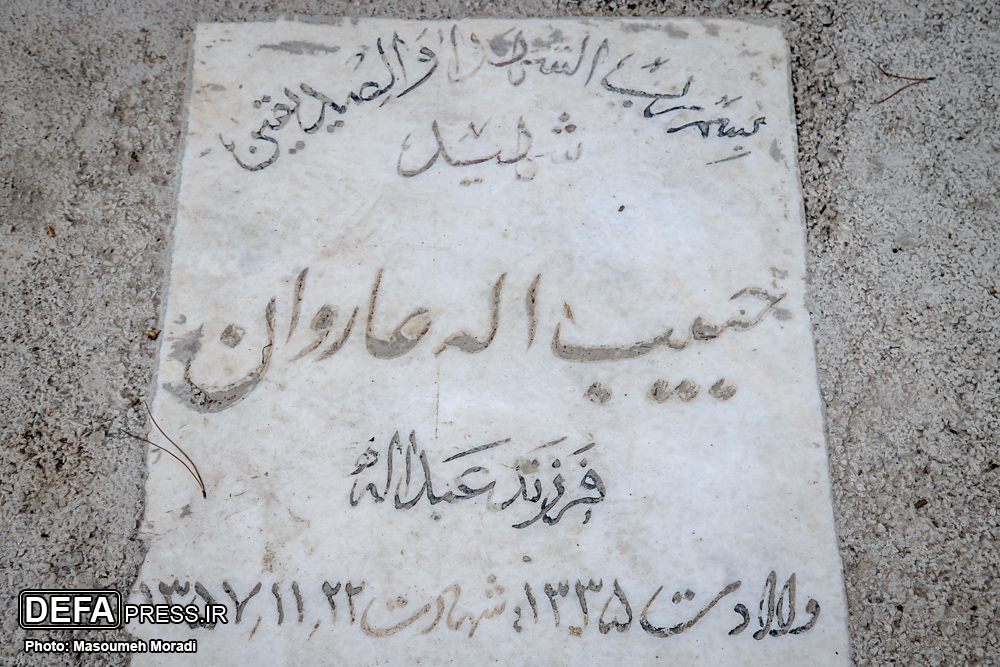 بسم رب الشهداء والصدیقین
شهید
حبیب اله عاروان
فرزند عبداله
ولادت ۱۳۳۵ شهادت ۲۲٫۱۱٫۱۳۵۷
DEFAPRESS.IR
Photo: Masoumeh Moradi